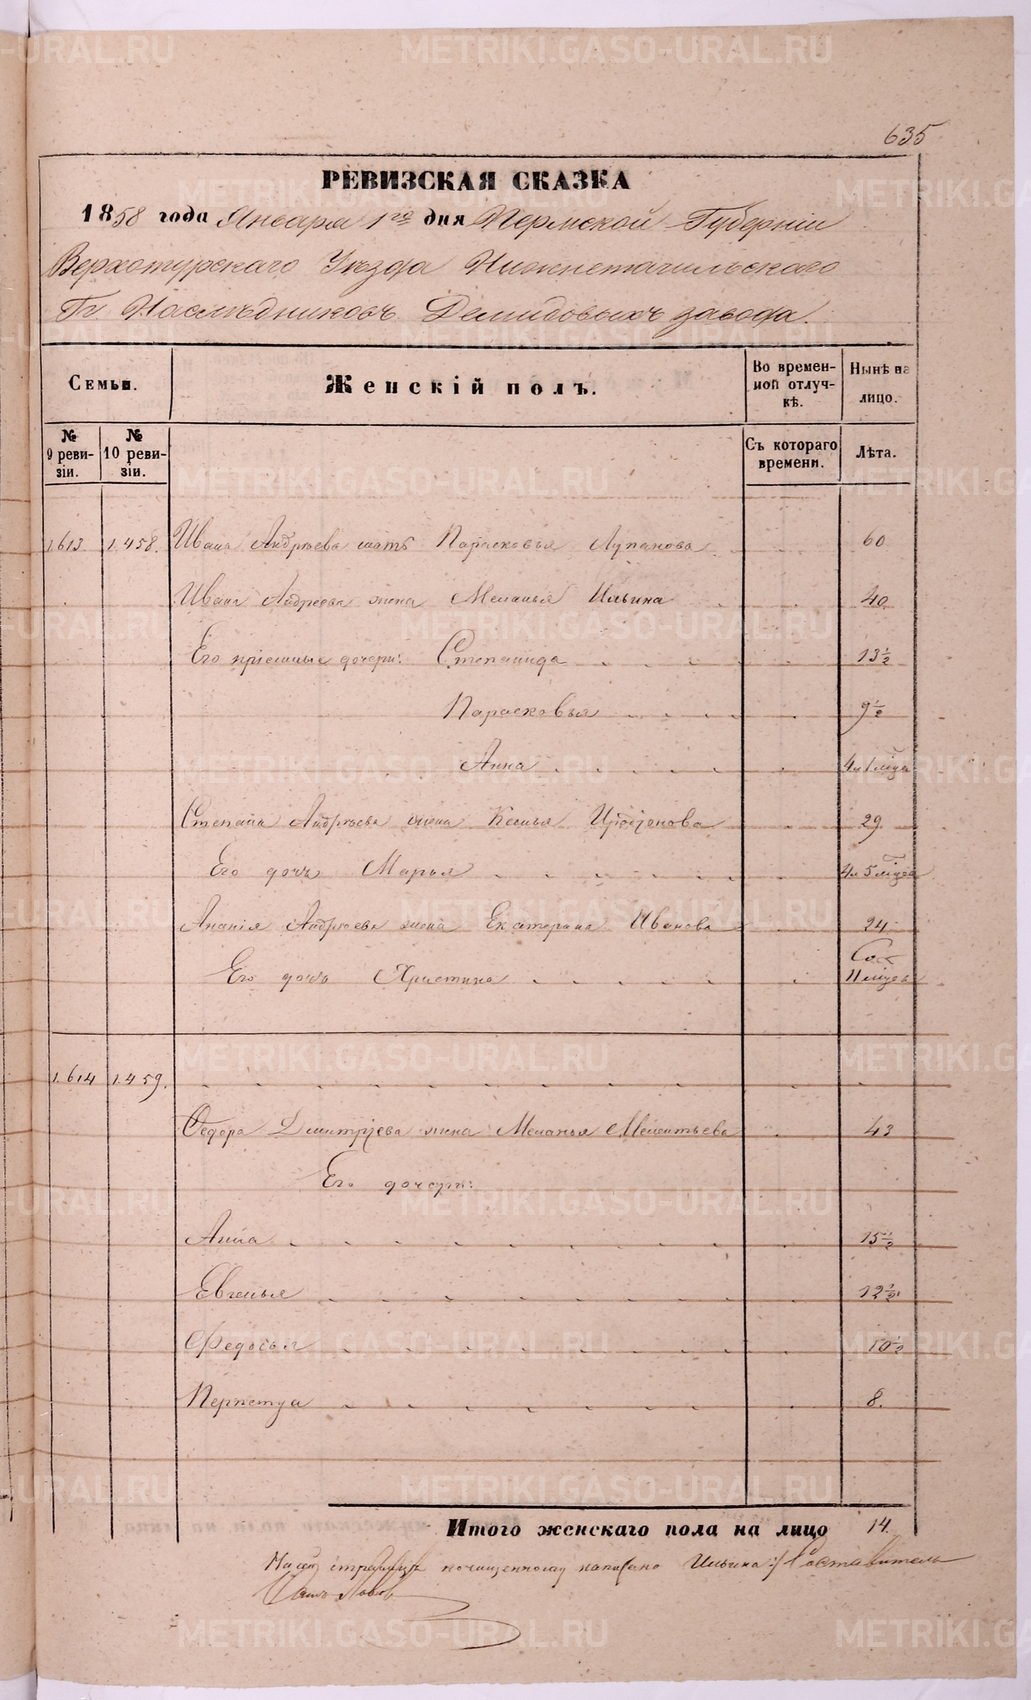 635
РЕВИЗСКАЯ СКАЗКА
1858 года Января 1го дня Пермской Губерніи
Верхотурскаго Уезда Нижнетагильскаго
Гг Наследниковъ Демидовыхъ завода.
Семьи. Женскій полъ. Во времен-ной отлуч-кѣ. Нынѣ на лицо.
№ 9 реви-зіи. № 10 реви-зіи. Съ котораго времени. Лѣта.
1.613 1.458. Ивана Андрѣева мать Парасковья Лупанова 60
Ивана Андреева жена Меланья Ильина 40
Его пріемные дочери: Степанида 13½
Парасковья 9½
Анна 4 и 1 мѣця
Степана Андрѣева жена Ксенья 29
Его дочь Марья 4 и 5 мѣцев
Ананія Андреева жена Екатерина Иванова 24
Его дочь Христина 11 мѣцев
1.614 1.459.
Федора Дмитріева жена Меланья Мелентьева 43
Его дочери:
Анна 15½
Евгенья 12½
Федосья 10½
Перпетуа 8.
Итого женскаго пола на лицо 14.
На сей странице почищенному написано Ильина:/ Составитель
METRIKI.GASO-URAL.RU